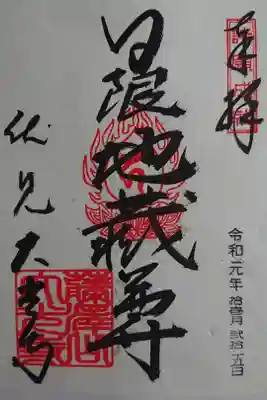 奉拝
日限地蔵尊
伏見 大
令和元年 拾壹月 貳拾五日